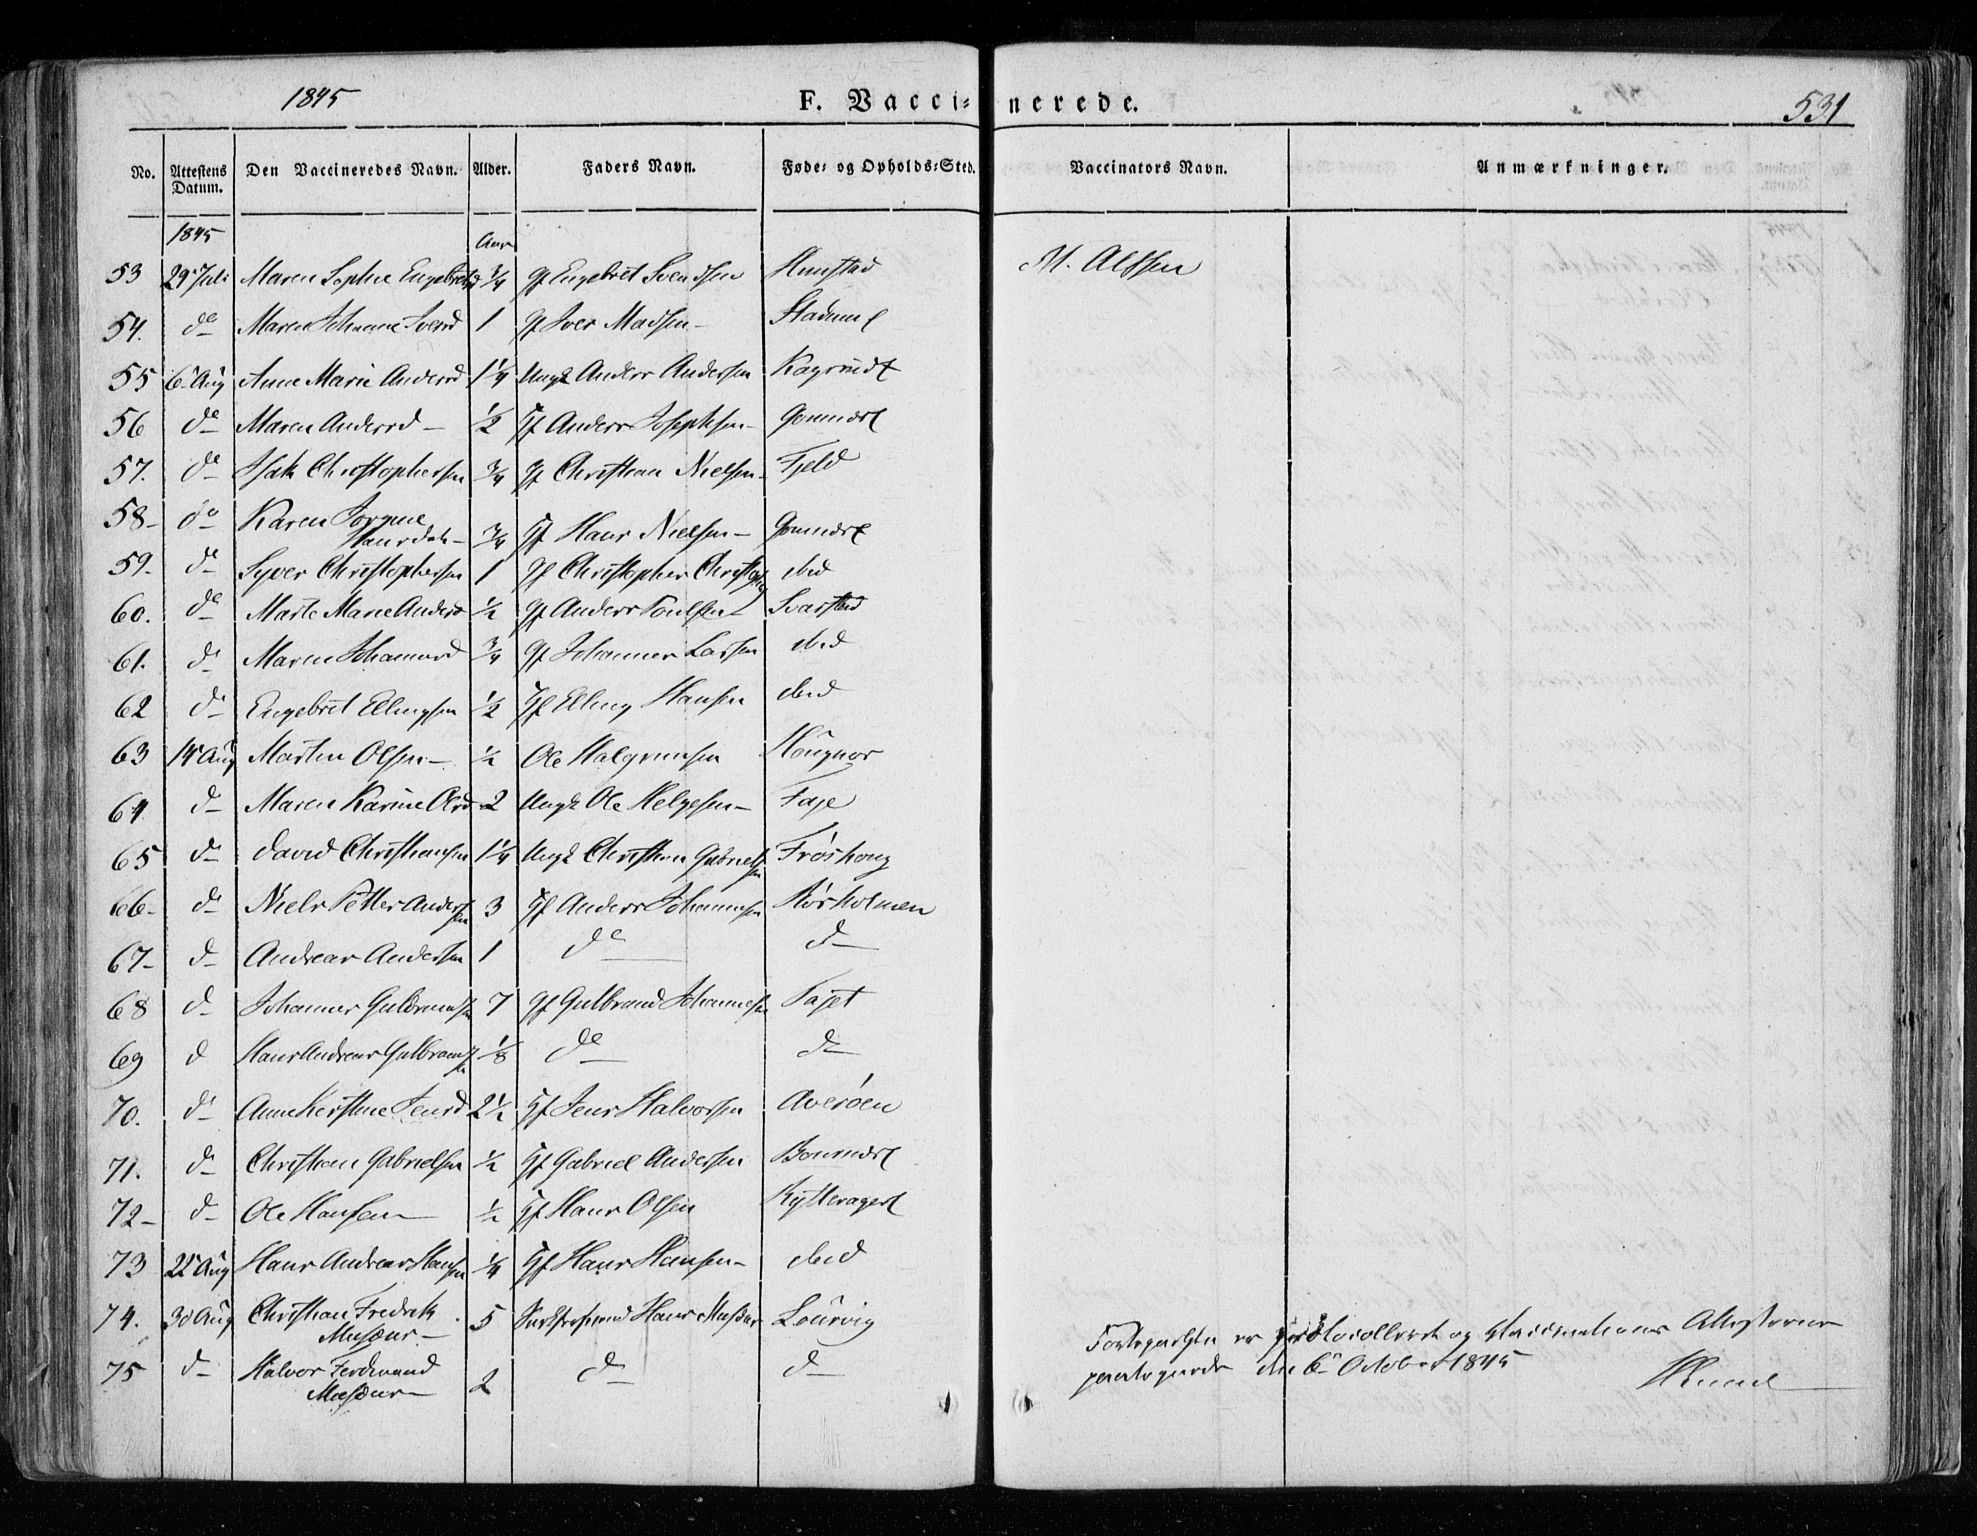 1845 F. Vaccinerede. 531
No. Attestens Datum. Den Vaccineredes Navn. Alder. Faders Navn. Føde- og Opholds-Sted. Vaccinators Navn. Anmærkninger.
1845 Aar
53 29 Juli Maren Sophie Engebretsd 3/4 Gf Engebret Svendsen M. Alfsen
54. do Maren Iversd 1 Gf Iver Madsen
55 6 Aug Anne Marie Andersd 1 1/4 Ungk Anders Andersen
56 do Maren Andersd 1/2 Gf Anders Josephsen
57. do Isak Christophersen 3/4 Gf Christian Nielsen Fjeld
58 do Karen Hansdatr 3/4 Gf Hans Nielsen
59. do Syver Christophersen 1 Gf Christopher ibid
60. do Marte Marie Andersd 1/2 Gf Anders Poulsen Svarstad
61. do Maren Johannesd 3/4 Gf Johannes Larsen ibid
62 do Engebret Ellingsen 1/2 Gf Elling Hansen ibid
63 14 Aug Martin Olsen 1/2 Ole Halgrimsen
64 do Maren Karine Olsd 2 Ungk Ole Helgesen
65 do David Christiansen 1 1/4 Ungk Christian Gabrielsen Frøshoug
66 do Niels Petter Andersen 3 Gf Anders Johannesen Rørholmen
67 do Andreas Andersen 1 do do
68 do Johannes Gulbransen 7 Gf Gulbrand Johannessen
69 do Hans Andreas Gulbransen 1/8 do do
70. do Anne Kirstine Jensd 2 1/2 Gf Jens Halvorsen Averøen
71. do Christian Gabrielsen 1/2 Gf Gabriel Andersen
72 do Ole Hansen 1/2 Gf Hans Olsen Rytteraget
73 22 Aug Hans Andreas Hansen 1/4 Gf Hans Hansen ibid
74. 30 Aug Christian Fredrik 5 Hans Lourvig
75 do Halvor Ferdinand 2 do do
er protocolleret og Vaccinations Attesterne
den 6 October 1845